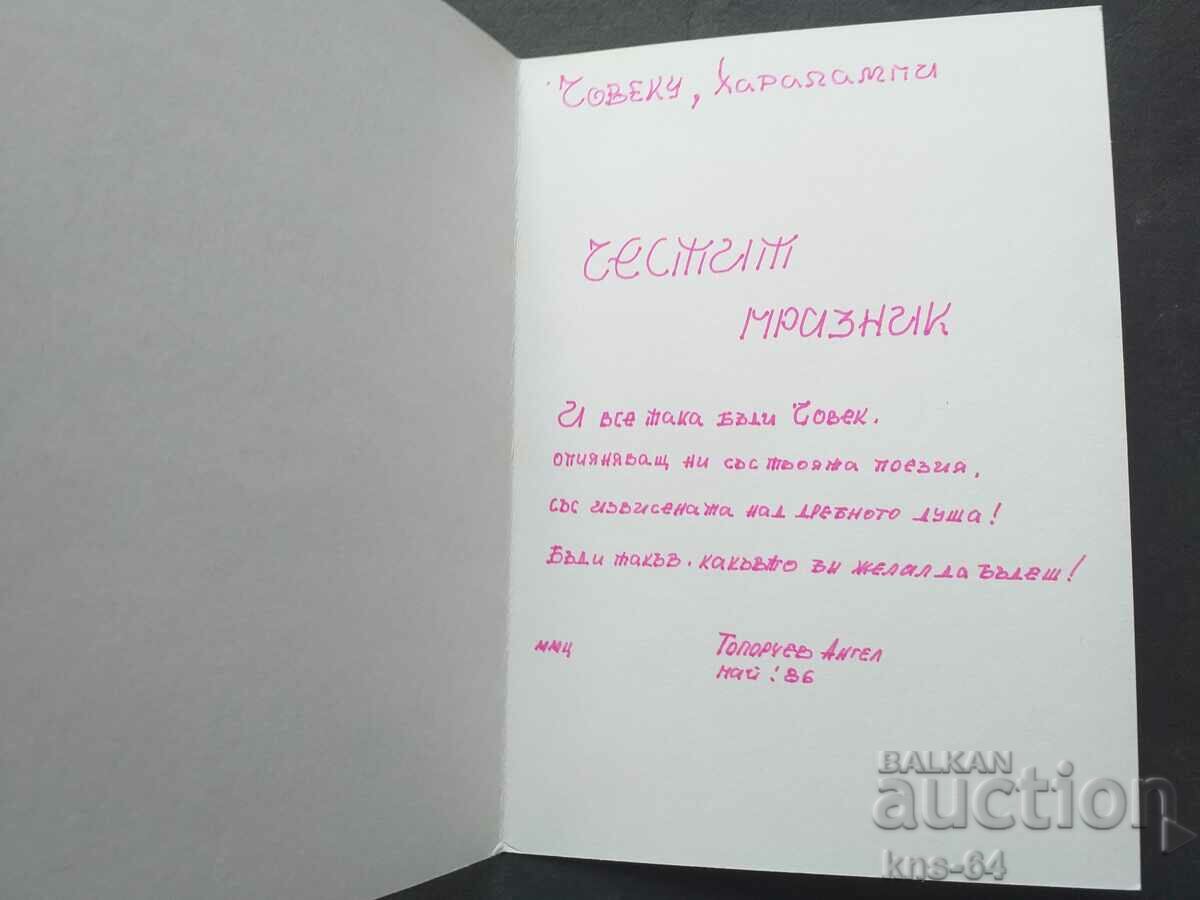 Човеку, Харалампи
ЧЕСТИТ
ПРАЗНИК
И все така бъди Човек.
опияняващ ни със твоята поезия,
със извисената над дребното душа!
Бъди такъв, какъвто би желал да бъдеш!
ММЦ
Топорчев Ангел
май! 86
BALKAN
auction
kns-64